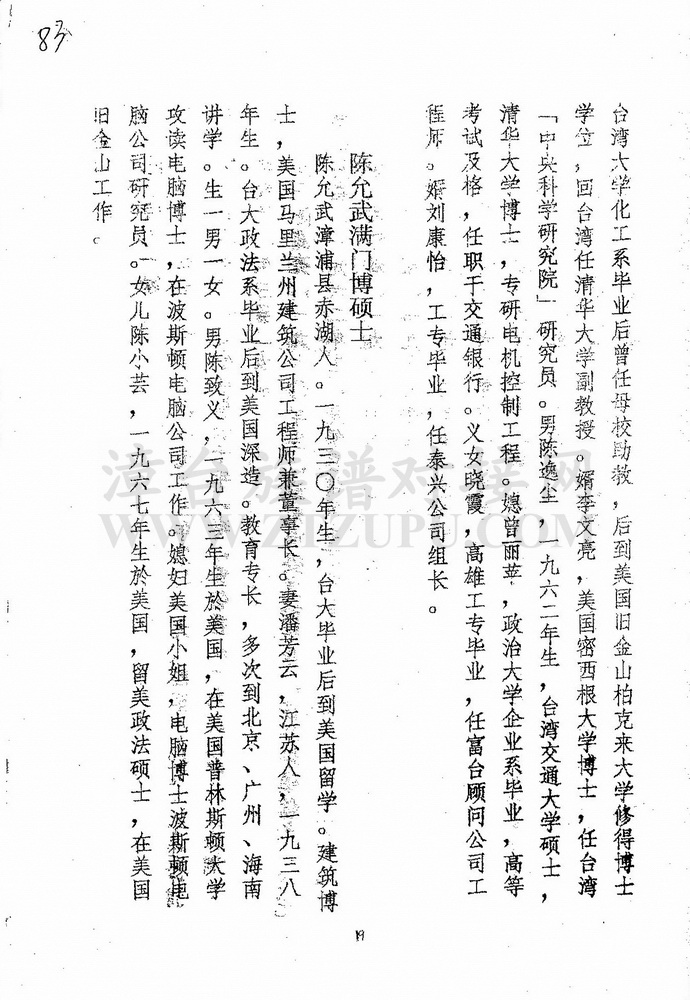 83
台湾大学化工系毕业后曾任母校助教，后到美国旧金山柏克来大学修得博士
学位，回台湾任清华大学副教授。婿李文亮，美国密西根大学博士，任台湾
「中央科学研究院」研究员。男陈逸尘，一九六二年生，台湾交通大学硕士，
清华大学博士，专研电机控制工程。媳曾丽苹，政治大学企业系毕业，高等
考试及格，任职于交通银行。义女晓霞，高雄工专毕业，任富台顾问公司工
程师。婿刘康怡，工专毕业，任泰兴公司组长。
陈允武满门博硕士
陈允武漳浦县赤湖人。一九三〇年生，台大毕业后到美国留学。建筑博
士，美国马里兰州建筑公司工程师兼董事长。妻潘芳云，江苏人，一九三八
年生。台大政法系毕业后到美国深造。教育专长，多次到北京、广州、海南
讲学。生一男一女。男陈致义，一九六三年生於美国，在美国普林斯顿大学
攻读电脑博士，在波斯顿电脑公司工作。媳妇美国小姐，电脑博士波斯顿电
脑公司研究员。女儿陈小芸，一九六七年生於美国，留美政法硕士，在美国
旧金山工作。
19
法台族谱对接网
WWW.ZIZUPU.COM